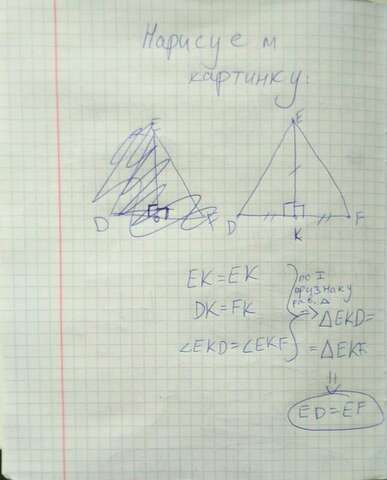 Нарисуем
картинку:
E
D
F
E
D
K
F
EK = EK
DK = FK
∠EKD = ∠EKF
по I
признаку
рав. Δ
=> ΔEKD =
= ΔEKF
ED = EF